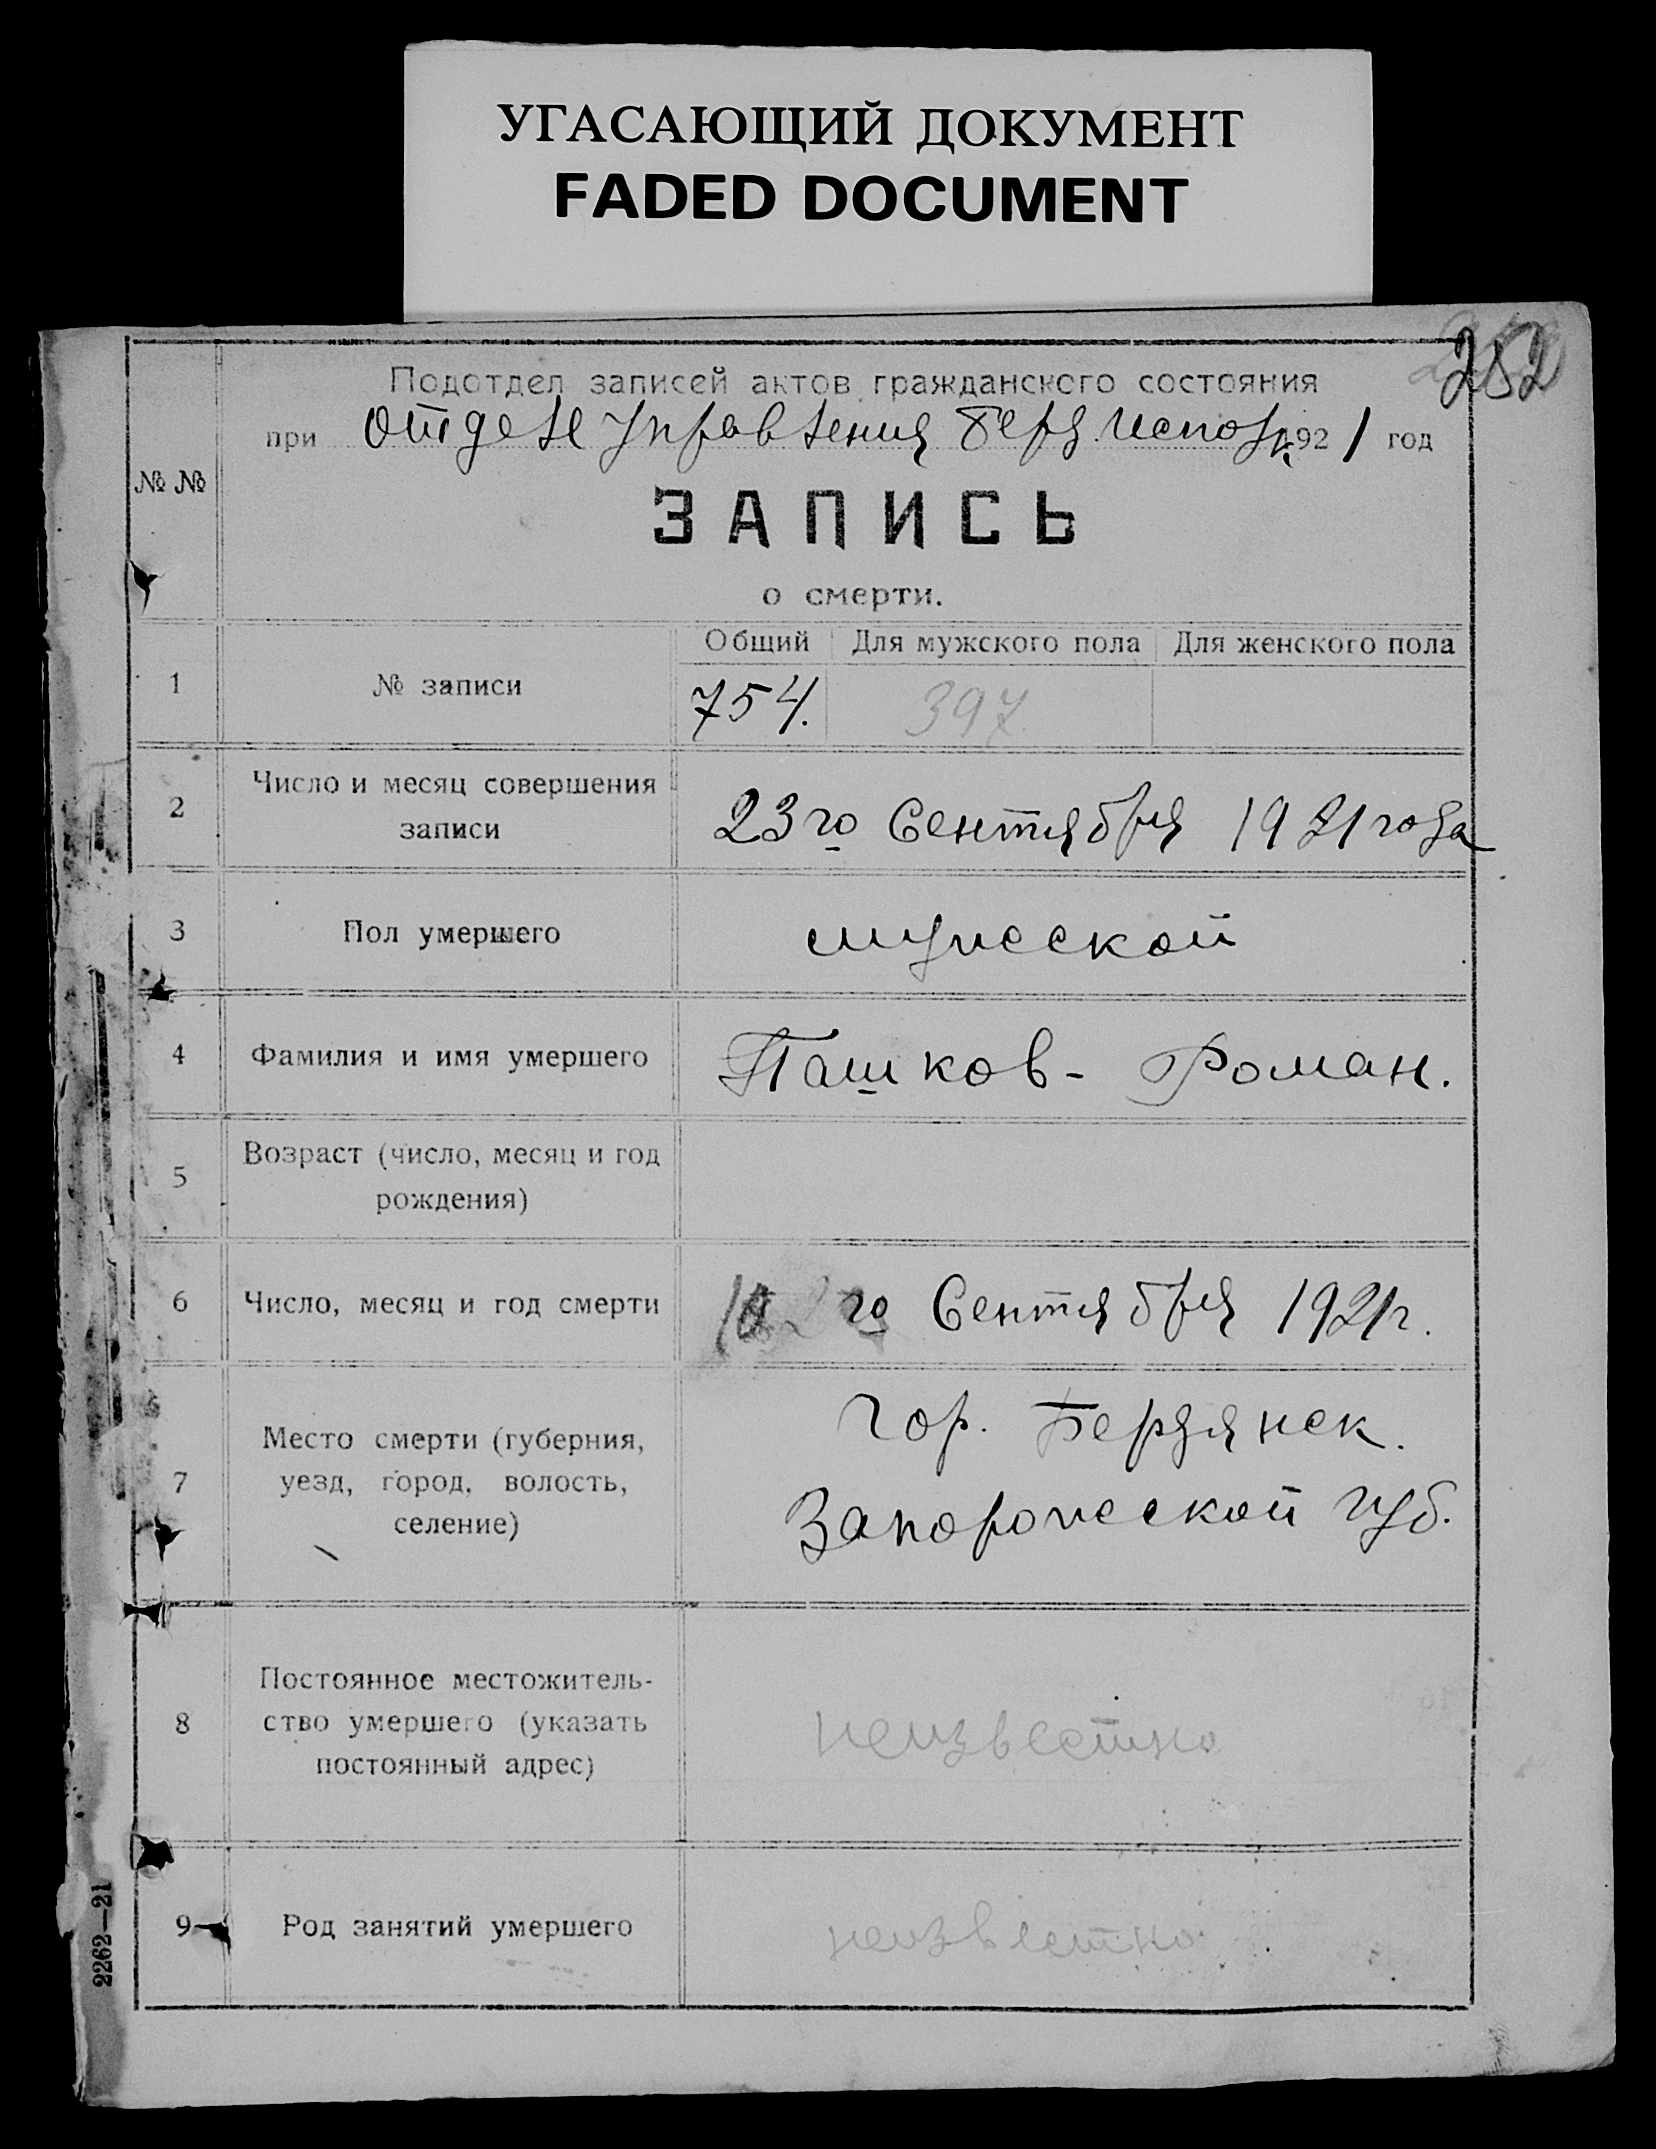 УГАСАЮЩИЙ ДОКУМЕНТ
FADED DOCUMENT
252
Подотдел записей актов гражданского состояния
при Отделе Управления Берд. Исполк. 1921 год
№ №
ЗАПИСЬ
о смерти.
Общий Для мужского пола Для женского пола
1 № записи 754. 397
2 Число и месяц совершения
записи 23го Сентября 1921 года
3 Пол умершего мужской
4 Фамилия и имя умершего Пашков - Роман.
5 Возраст (число, месяц и год
рождения)
6 Число, месяц и год смерти го Сентября 1921г.
7 Место смерти (губерния,
уезд, город, волость,
селение)
Гор. Бердянск.
Запорожской губ.
8 Постоянное местожитель-
ство умершего (указать
постоянный адрес)
неизвестно
9 Род занятий умершего неизвестно
2262—21